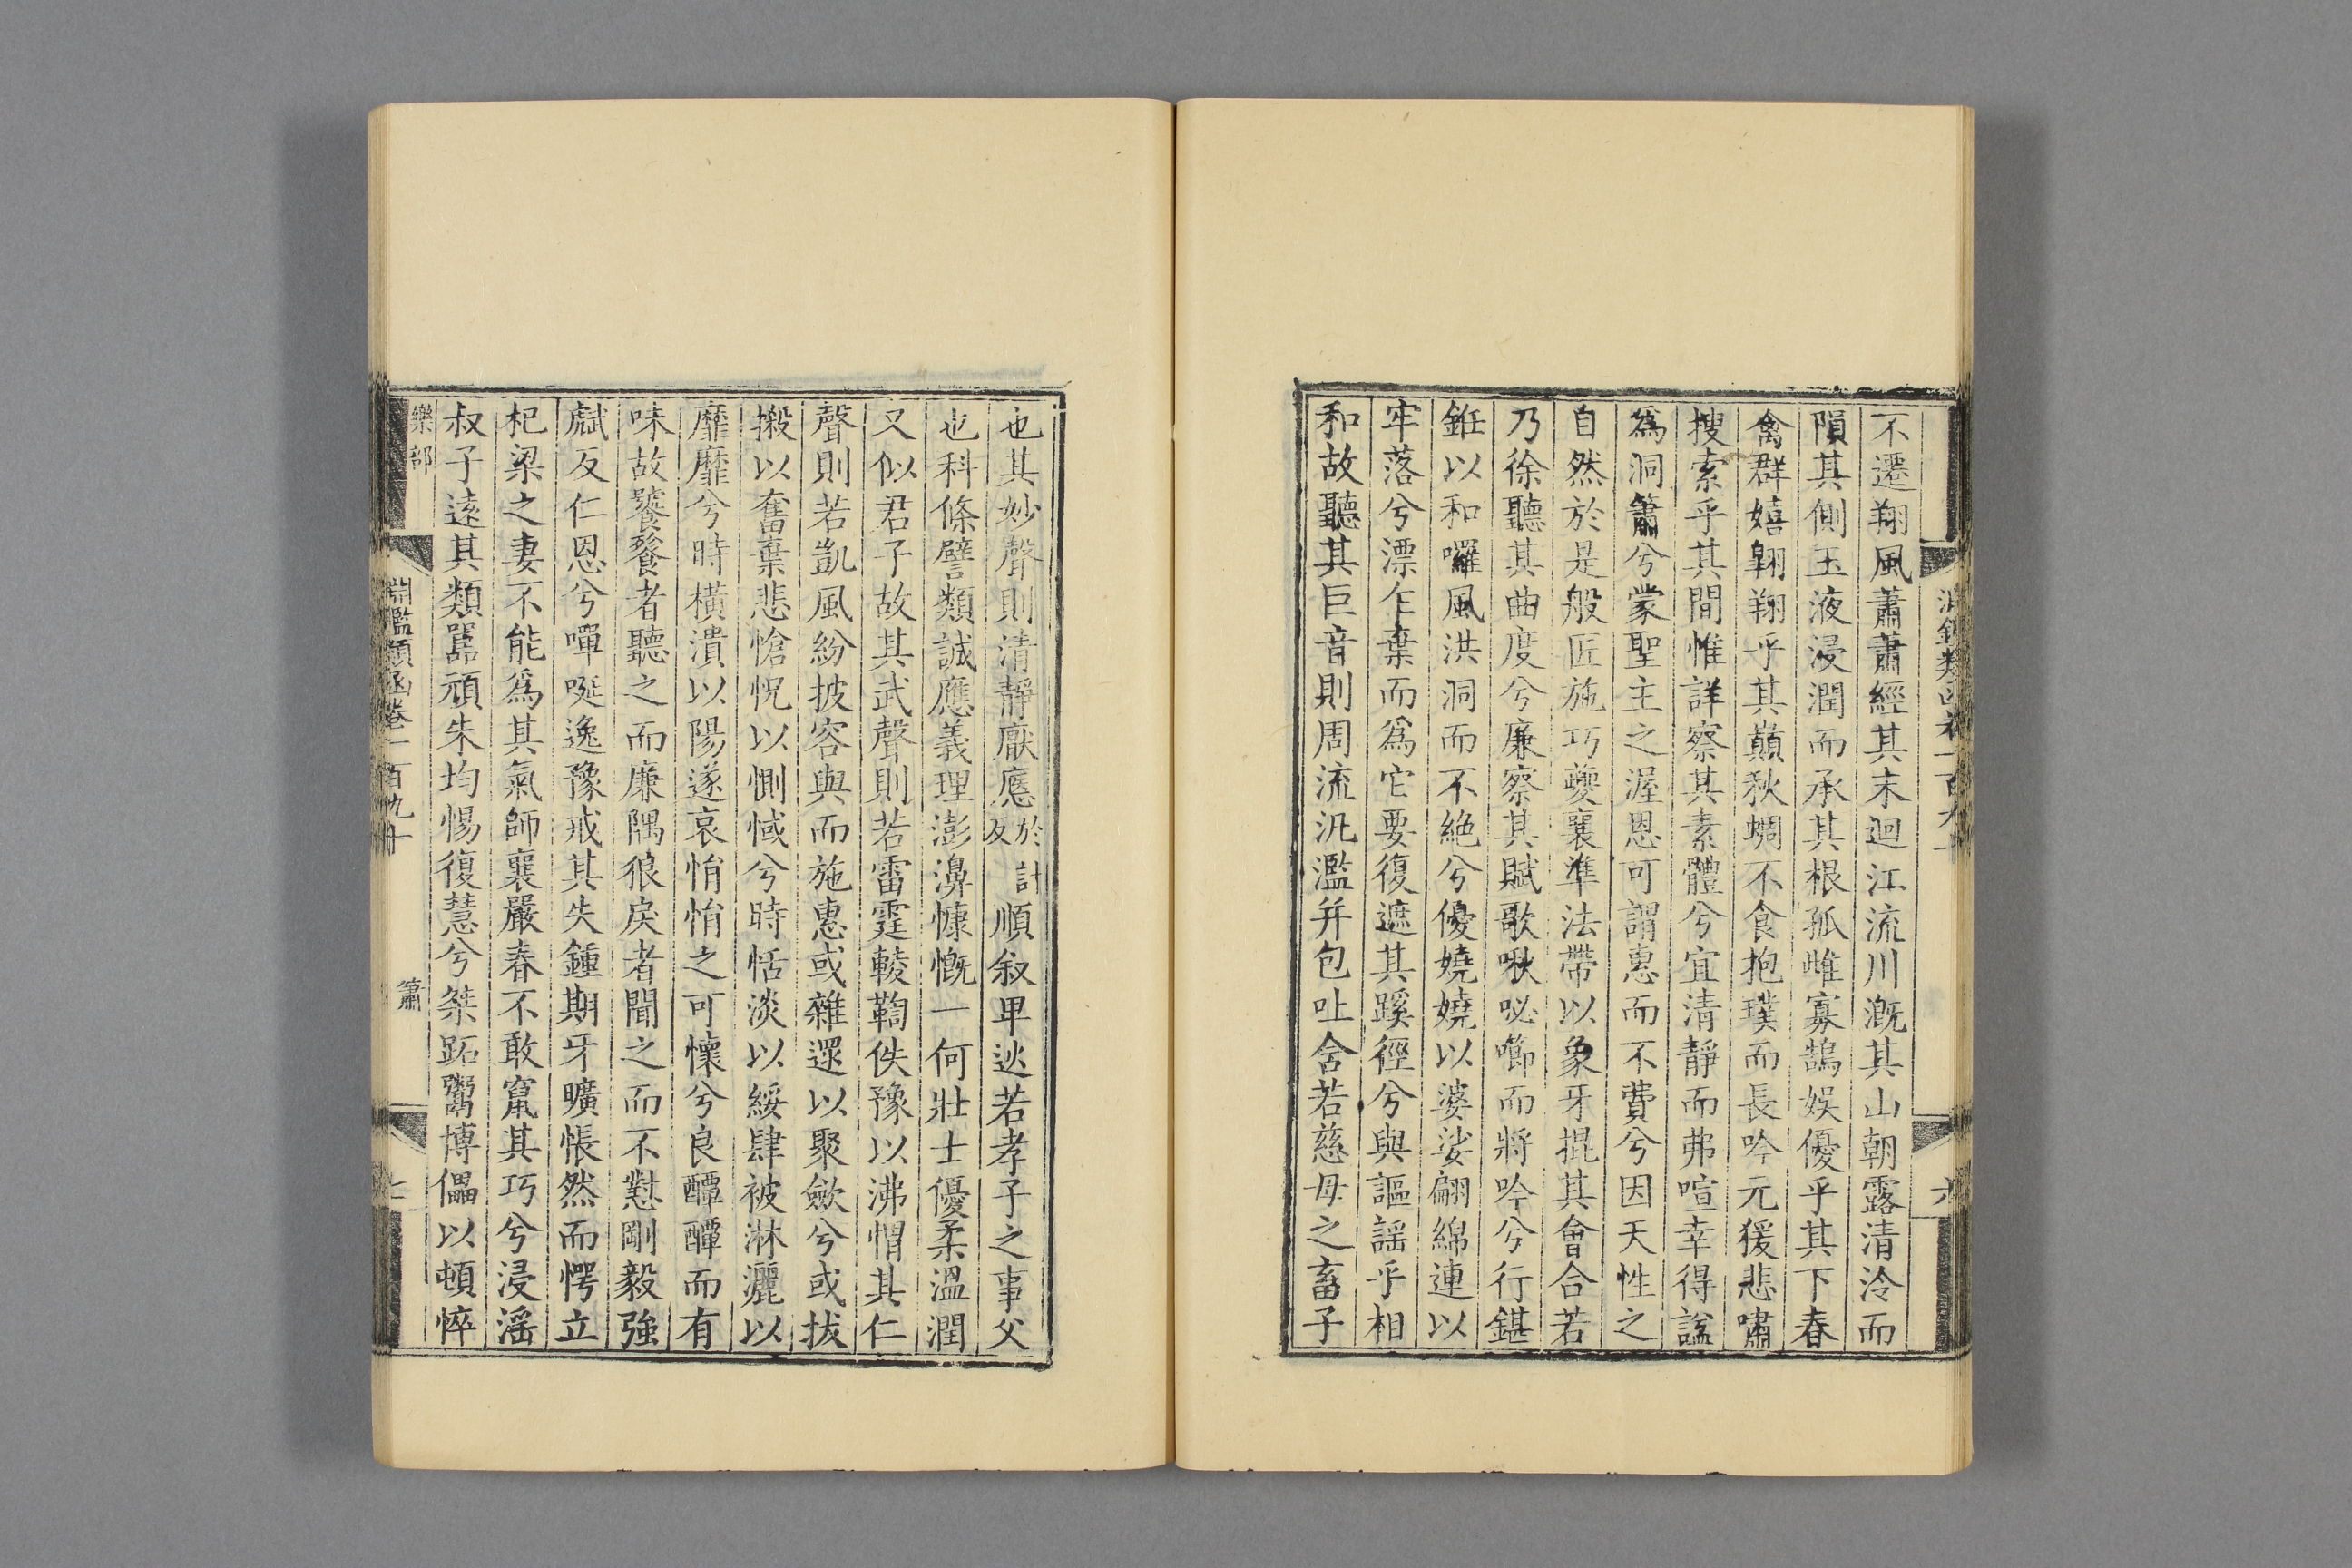 不遷翔風蕭蕭經其末迴江流川溉其山朝露清泠而
隕其側玉液浸潤而承其根孤雌寡鵠娛優乎其下春
禽群嬉翱翔乎其巔秋蜩不食抱璞而長吟元猨悲嘯
搜索乎其間惟詳察其素體兮宜清靜而弗喧幸得謚
為洞簫兮蒙聖主之渥恩可謂惠而不費兮因天性之
自然於是般匠施巧夔襄準法帶以象牙掍其會合若
乃徐聽其曲度兮廉察其賦歌啾咇㘉而將吟兮行鍖
銋以和囉風洪洞而不絕兮優嬈嬈以婆娑翩綿連以
牢落兮漂乍棄而為它要復遮其蹊徑兮與謳謠乎相
和故聽其巨音則周流汎濫并包吐含若慈母之畜子
也其妙聲則清靜厭㥷於計反順叙卑迖若孝子之事父
也科條譬類誠應義理澎濞慷慨一何壯士優柔溫潤
又似君子故其武聲則若雷霆輘輷佚豫以沸㥜其仁
聲則若凱風紛披容與而施惠或雜遝以聚斂兮或拔
搬以奮棄悲愴怳以惻惐兮時恬淡以綏肆被淋灑以
靡靡兮時橫潰以陽遂哀悁悁之可懷兮良醰醰而有
味故饕餮者聽之而廉隅狼戾者聞之而不懟剛毅強
虣反仁恩兮嘽唌逸豫戒其失鍾期牙曠悵然而愕立
杞梁之妻不能為其氣師襄嚴春不敢竄其巧兮浸滛
叔子遠其類嚚頑朱均惕復慧兮桀跖鬻博儡以頓悴
樂部
淵鑑類函卷一百九十
簫